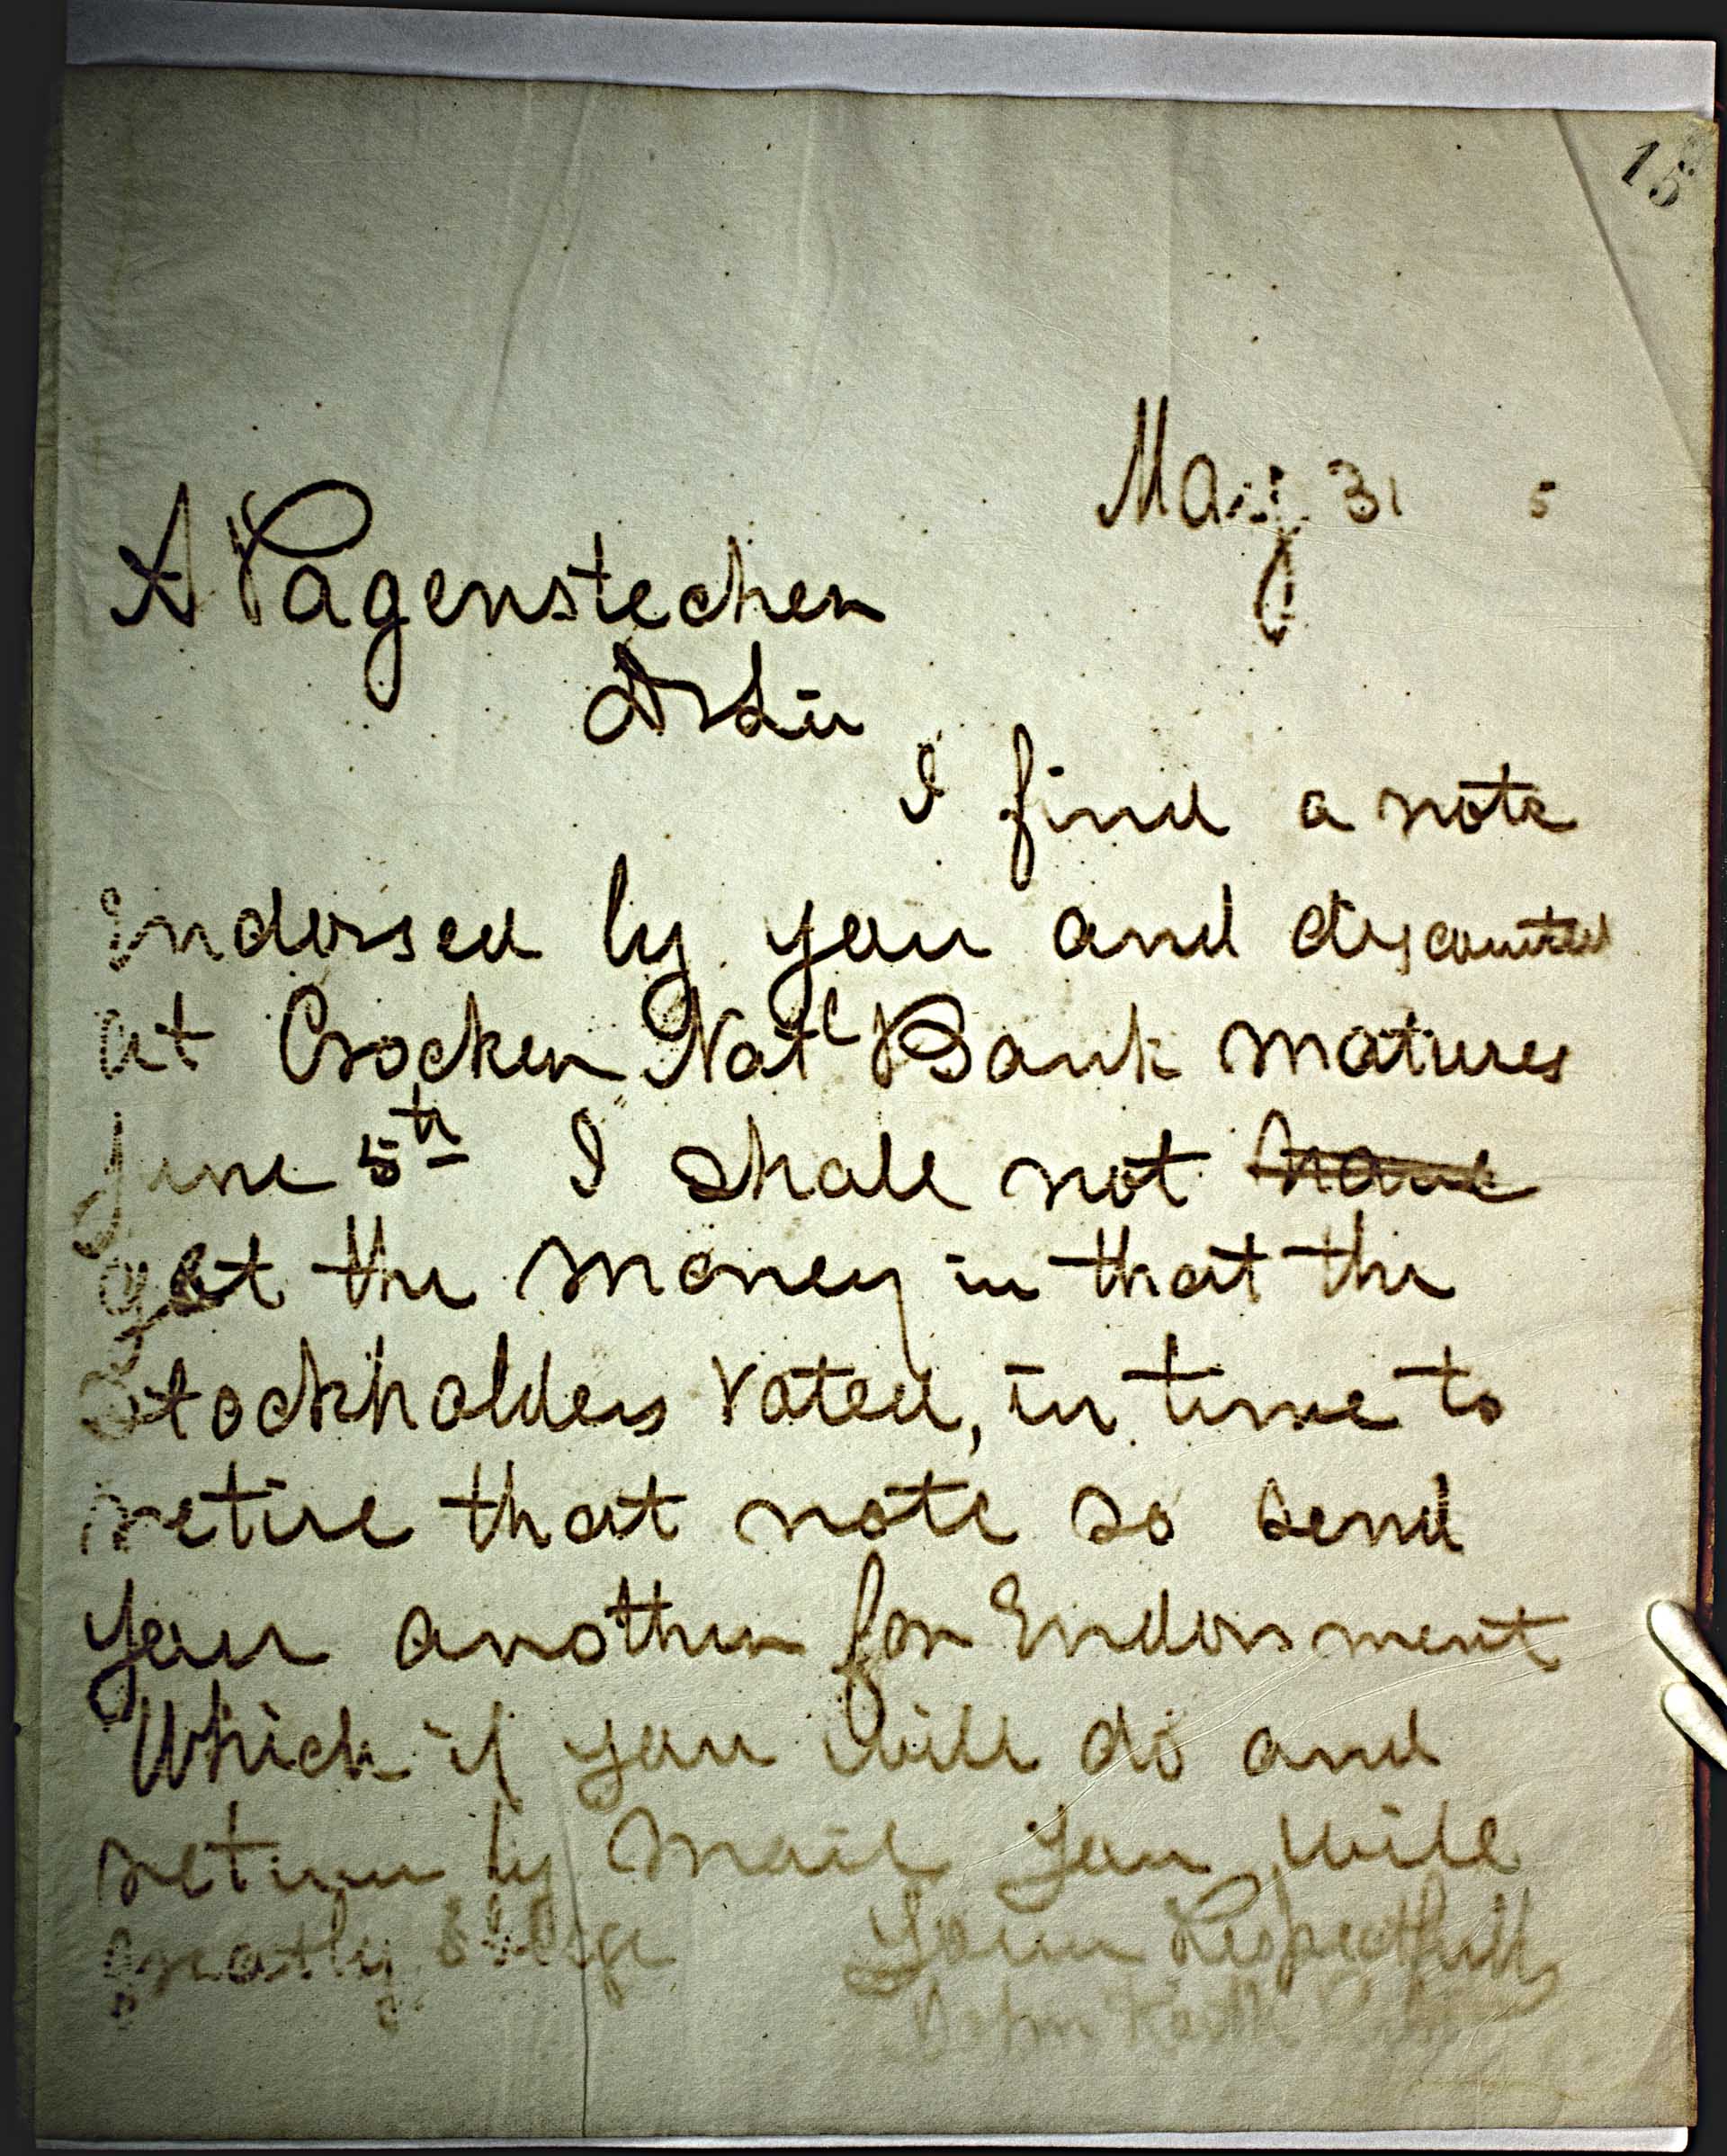 15
May 31 5
A Pagenstecher
Dr Sir
I find a note
Indorsed by you and discounted
at Crocker Natl Bank matures
June 5th I shall not have
get the money in that the
Stockholders voted, in time to
retire that note so send
you another for Endorsment
Which if you will do and
return by mail you will
greatly oblige Your Respectfully
John Keith